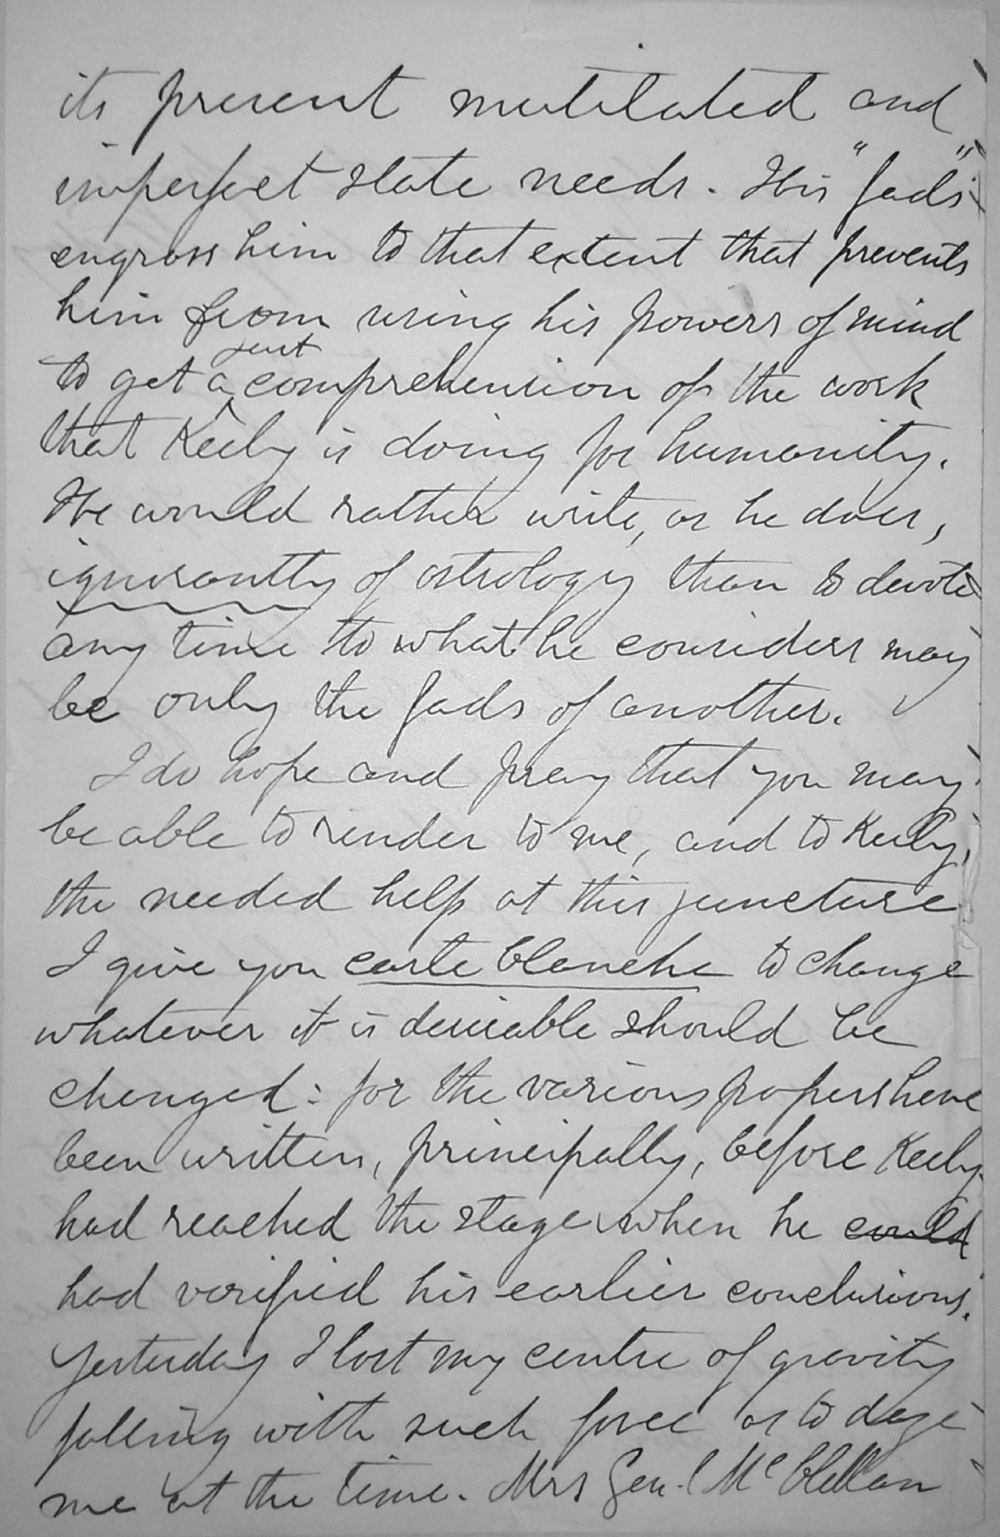 its present mutilated and
imperfect state needs. His "fads"
engross him to that extent that prevents
him from using his powers of mind
just
to get a comprehension of the work
that Keely is doing for humanity.
He would rather write, as he does,
ignorantly of astrology than to devote
any time to what he considers may
be only the fads of another.
I do hope and pray that you may
be able to render to me, and to Keely,
the needed help at this juncture
I give you carte blanche to change
whatever it is desirable should be
changed: for the various papers have
been written, principally, before Keely
had reached the stage when he could
had verified his earlier conclusions.
Yesterday I lost my centre of gravity
falling with such force as to daze
me at the time. Mrs Gen.l McClellan